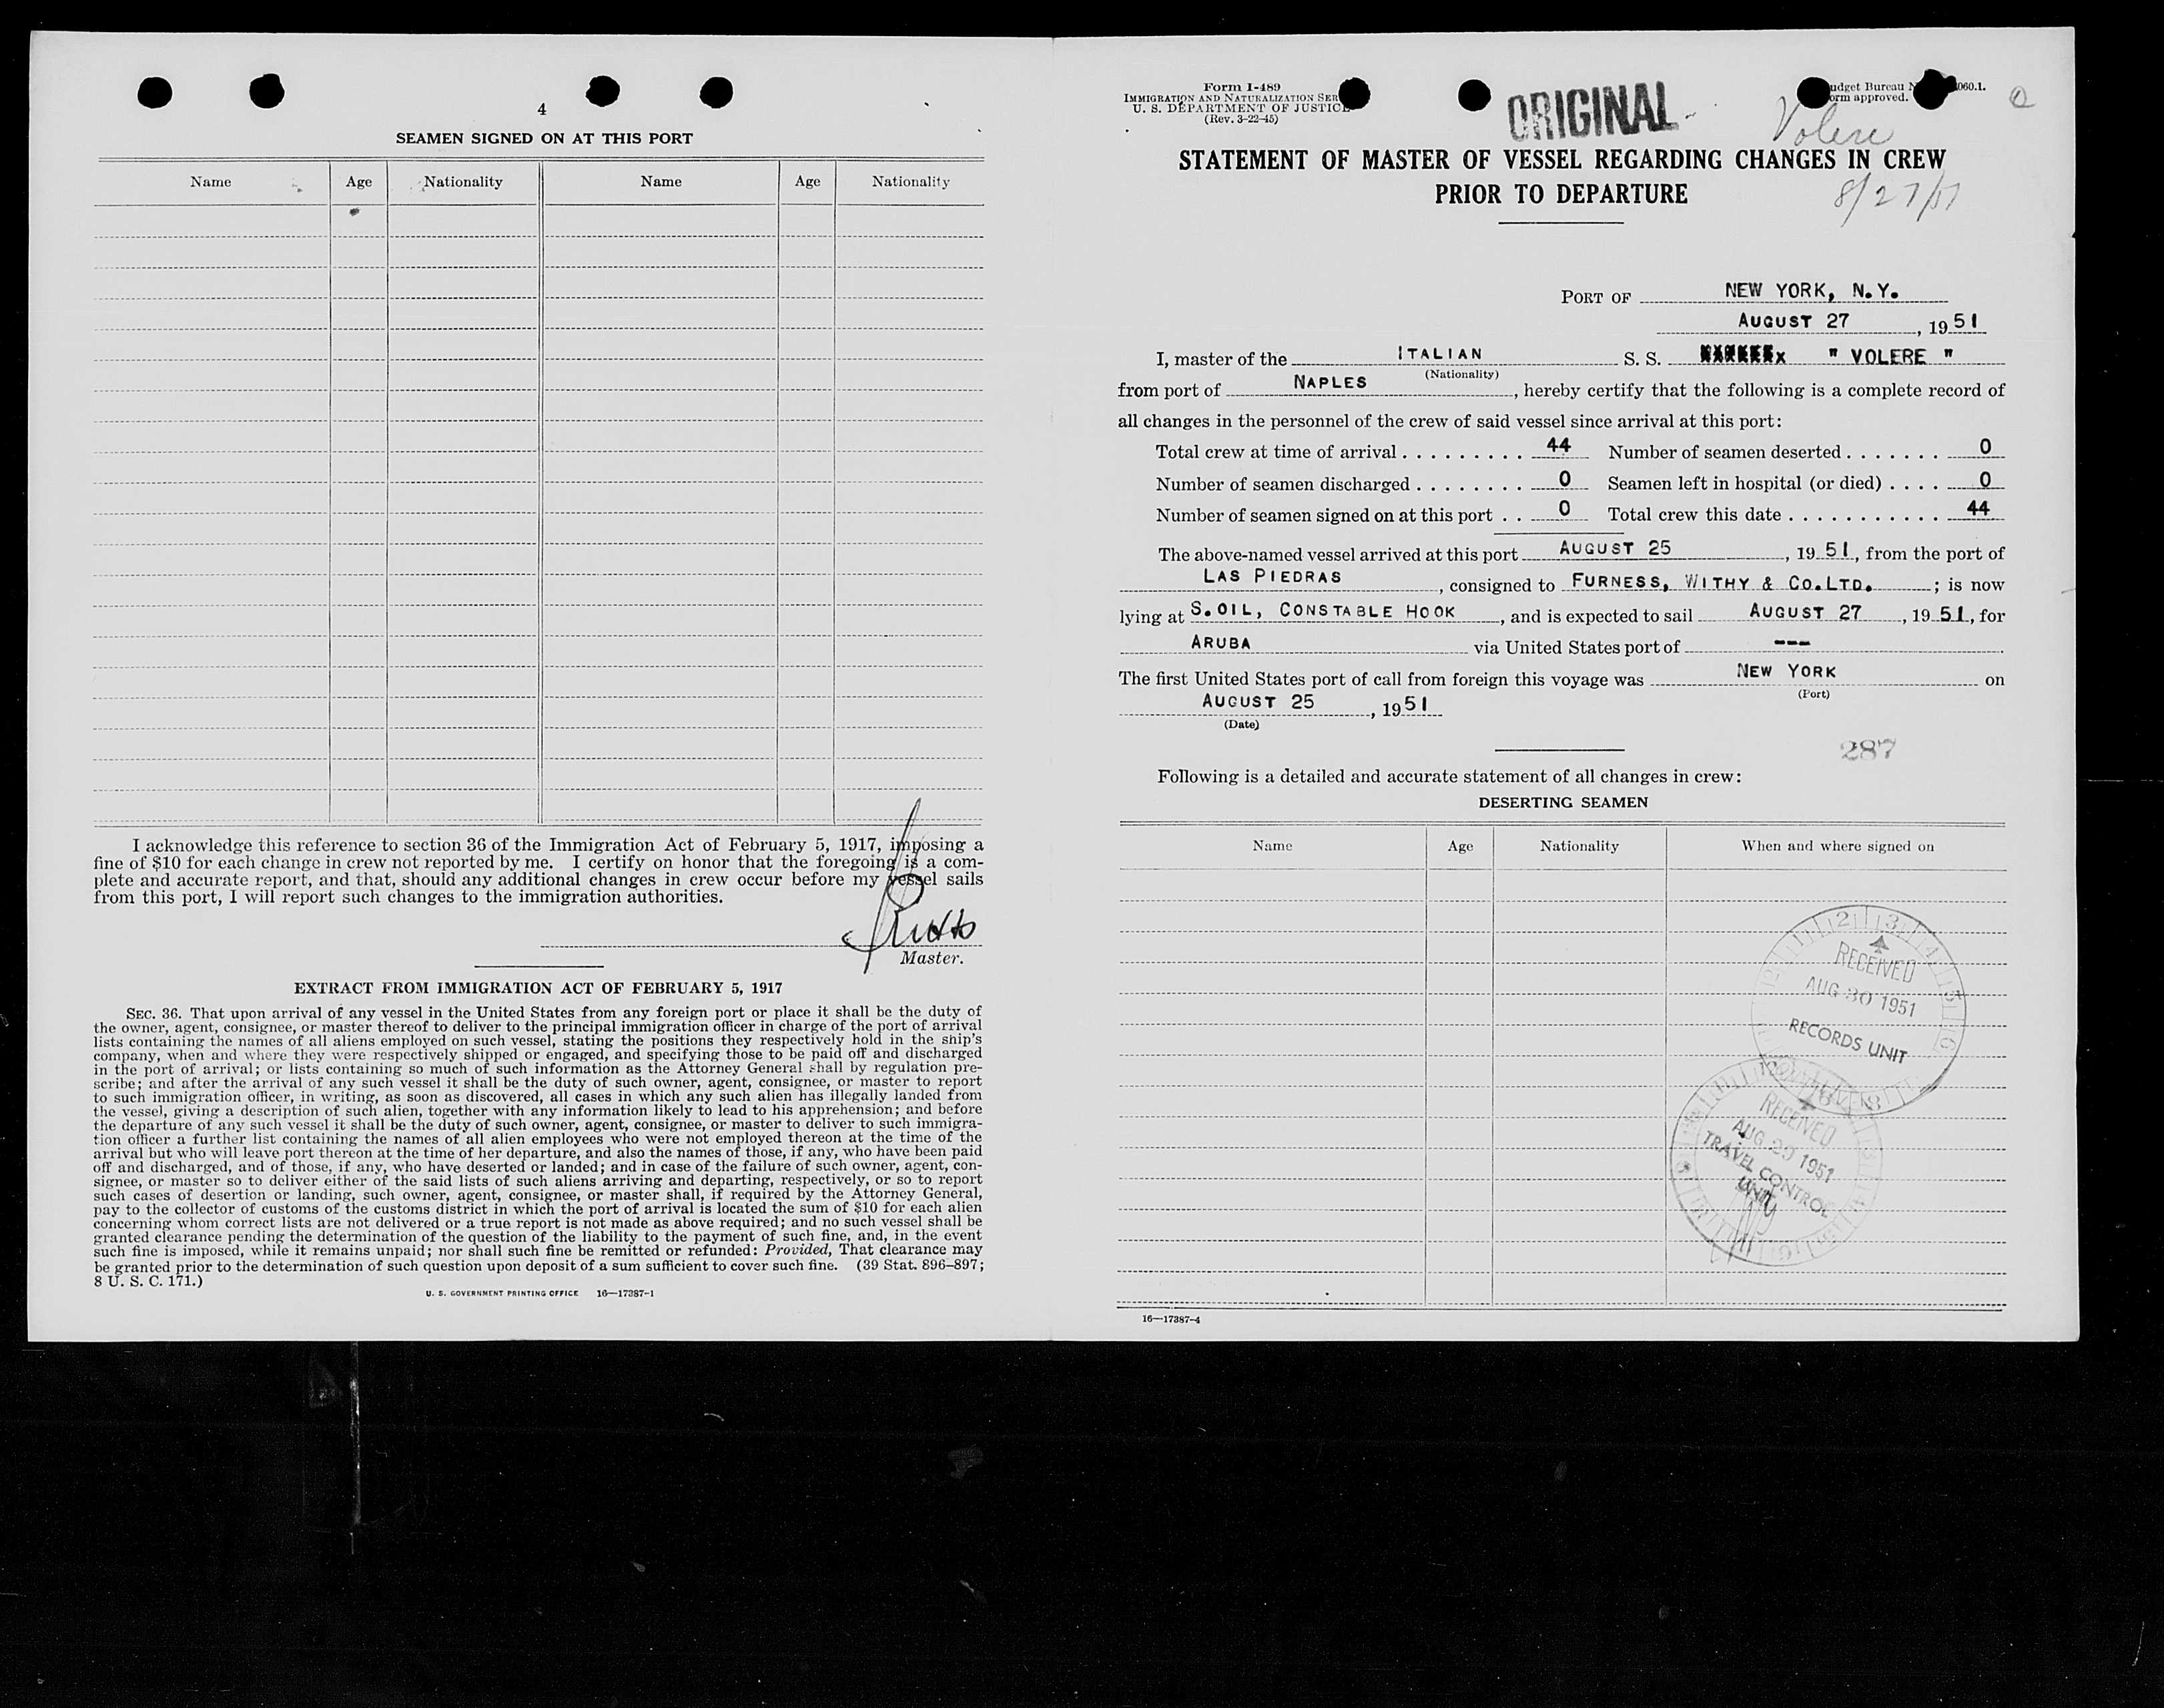 4
SEAMEN SIGNED ON AT THIS PORT
Name Age Nationality Name Age Nationality
I acknowledge this reference to section 36 of the Immigration Act of February 5, 1917, imposing a
fine of $10 for each change in crew not reported by me. I certify on honor that the foregoing is a com-
plete and accurate report, and that, should any additional changes in crew occur before my vessel sails
from this port, I will report such changes to the immigration authorities.
Master.
EXTRACT FROM IMMIGRATION ACT OF FEBRUARY 5, 1917
SEC. 36. That upon arrival of any vessel in the United States from any foreign port or place it shall be the duty of
the owner, agent, consignee, or master thereof to deliver to the principal immigration officer in charge of the port of arrival
lists containing the names of all aliens employed on such vessel, stating the positions they respectively hold in the ship's
company, when and where they were respectively shipped or engaged, and specifying those to be paid off and discharged
in the port of arrival; or lists containing so much of such information as the Attorney General shall by regulation pre-
scribe; and after the arrival of any such vessel it shall be the duty of such owner, agent, consignee, or master to report
to such immigration officer, in writing, as soon as discovered, all cases in which any such alien has illegally landed from
the vessel, giving a description of such alien, together with any information likely to lead to his apprehension; and before
the departure of any such vessel it shall be the duty of such owner, agent, consignee, or master to deliver to such immigra-
tion officer a further list containing the names of all alien employees who were not employed thereon at the time of the
arrival but who will leave port thereon at the time of her departure, and also the names of those, if any, who have been paid
off and discharged, and of those, if any, who have deserted or landed; and in case of the failure of such owner, agent, con-
signee, or master so to deliver either of the said lists of such aliens arriving and departing, respectively, or so to report
such cases of desertion or landing, such owner, agent, consignee, or master shall, if required by the Attorney General,
pay to the collector of customs of the customs district in which the port of arrival is located the sum of $10 for each alien
concerning whom correct lists are not delivered or a true report is not made as above required; and no such vessel shall be
granted clearance pending the determination of the question of the liability to the payment of such fine, and, in the event
such fine is imposed, while it remains unpaid; nor shall such fine be remitted or refunded: Provided, That clearance may
be granted prior to the determination of such question upon deposit of a sum sufficient to cover such fine. (39 Stat. 896-897;
8 U. S. C. 171.)
U. S. GOVERNMENT PRINTING OFFICE 16—17387-1
Form I-489
IMMIGRATION AND NATURALIZATION SER
U. S. DEPARTMENT OF JUSTICE
(Rev. 3-22-45)
ORIGINAL
udget Bureau N 060.1.
orm approved.
Volere
STATEMENT OF MASTER OF VESSEL REGARDING CHANGES IN CREW
PRIOR TO DEPARTURE
8/27/51
PORT OF NEW YORK, N.Y.
AUGUST 27, 1951
I, master of the ITALIAN S. S. " VOLERE "
(Nationality)
from port of NAPLES, hereby certify that the following is a complete record of
all changes in the personnel of the crew of said vessel since arrival at this port:
Total crew at time of arrival . . . . . . . . . 44 Number of seamen deserted . . . . . . . 0
Number of seamen discharged . . . . . . . . 0 Seamen left in hospital (or died) . . . . 0
Number of seamen signed on at this port . . 0 Total crew this date . . . . . . . . . . . . 44
The above-named vessel arrived at this port AUGUST 25, 1951, from the port of
LAS PIEDRAS, consigned to FURNESS, WITHY & CO.LTD.; is now
lying at S.OIL, CONSTABLE HOOK, and is expected to sail AUGUST 27, 1951, for
ARUBA via United States port of ---
The first United States port of call from foreign this voyage was NEW YORK on
(Port)
AUGUST 25, 1951
(Date)
287
Following is a detailed and accurate statement of all changes in crew:
DESERTING SEAMEN
Name Age Nationality When and where signed on
RECEIVED
AUG 30 1951
RECORDS UNIT
RECEIVED
AUG 29 1951
TRAVEL CONTROL
UNIT
16—17387-4